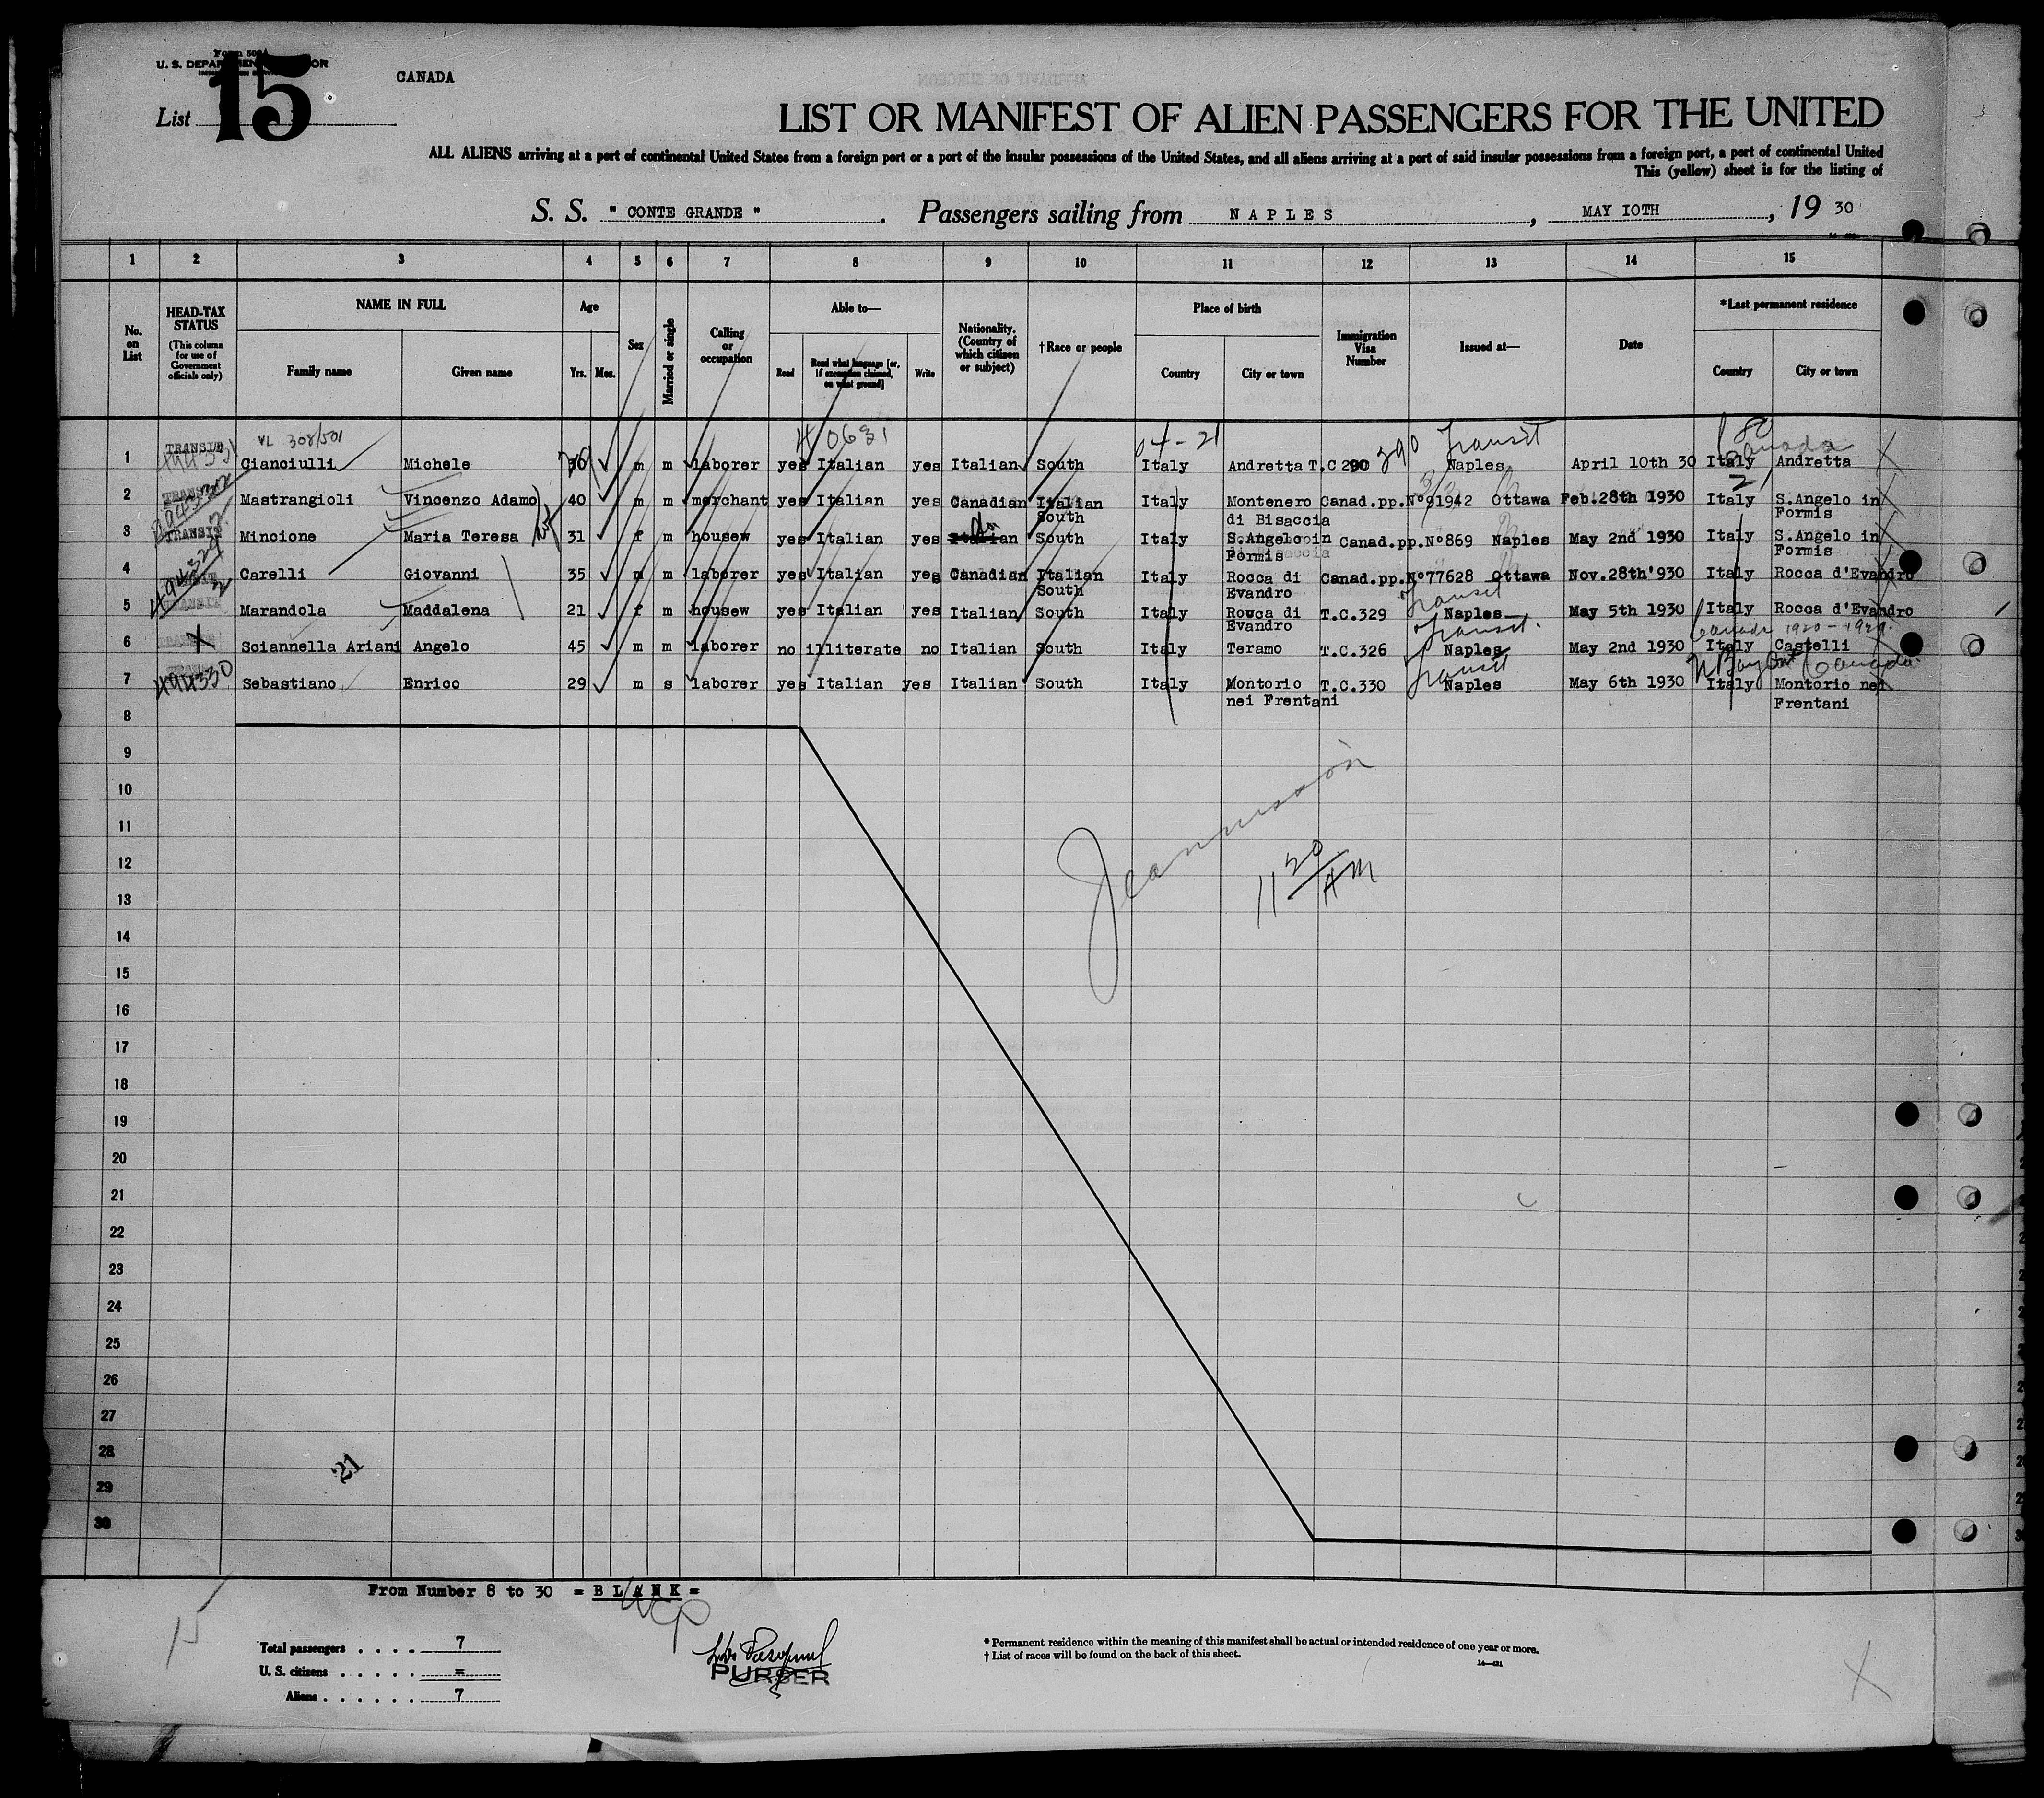 Form 500
U. S. DEPARTMENT OF LABOR
IMMIGRATION SERVICE
List 15
CANADA
LIST OR MANIFEST OF ALIEN PASSENGERS FOR THE UNITED
ALL ALIENS arriving at a port of continental United States from a foreign port or a port of the insular possessions of the United States, and all aliens arriving at a port of said insular possessions from a foreign port, a port of continental United
This (yellow) sheet is for the listing of
S. S. " CONTE GRANDE ". Passengers sailing from NAPLES, MAY IOTH, 19 30
1 2 3 4 5 6 7 8 9 10 11 12 13 14 15
No. on List
HEAD-TAX STATUS
(This column for use of Government officials only)
NAME IN FULL
Family name Given name
Age
Yrs. Mos.
Sex
Married or single
Calling or occupation
Able to—
Read
Read what language [or, if exemption claimed, on what ground]
Write
Nationality. (Country of which citizen or subject)
†Race or people
Place of birth
Country City or town
Immigration Visa Number
Issued at—
Date
*Last permanent residence
Country City or town
VL 308/501 04-21 390 Transit Canada
1 TRANSIT 494331 Cianciulli Michele 30 m m laborer yes Italian yes Italian South Italy Andretta T.C 290 Naples April 10th 30 Italy Andretta
2 Mastrangioli Vincenzo Adamo 40 m m merchant yes Italian yes Canadian Italian South Italy Montenero di Bisaccia Canad.pp.Nº91942 Ottawa Feb.28th 1930 Italy S.Angelo in Formis
3 TRANSIT Mincione Maria Teresa wf 31 f m housew yes Italian yes Italian do South Italy S.Angelo in Formis Canad.pp.Nº869 Naples May 2nd 1930 Italy S.Angelo in Formis
4 Carelli Giovanni 35 m m laborer yes Italian yes Canadian Italian South Italy Rocca di Evandro Canad.pp.Nº77628 Ottawa Nov.28th'930 Italy Rocca d'Evandro
Transit
5 TRANSIT Marandola Maddalena 21 f m housew yes Italian yes Italian South Italy Rocca di Evandro T.C.329 Naples May 5th 1930 Italy Rocca d'Evandro
Transit. Canada 1920-1929.
6 X Sciannella Ariani Angelo 45 m m laborer no illiterate no Italian South Italy Teramo T.C.326 Naples May 2nd 1930 Italy Castelli
Transit N Bay Ont Canada.
7 494330 Sebastiano Enrico 29 m s laborer yes Italian yes Italian South Italy Montorio nei Frentani T.C.330 Naples May 6th 1930 Italy Montorio nei Frentani
8
9
10
11
12
13
14
15
16
17
18
19
20
21
22
23
24
25
26
27
28
29
30
11 20 AM
21
From Number 8 to 30 = B L A N K =
15
Total passengers . . . . 7
U. S. citizens . . . . . =
Aliens . . . . . . 7
PURSER
* Permanent residence within the meaning of this manifest shall be actual or intended residence of one year or more.
† List of races will be found on the back of this sheet.
14—421
X